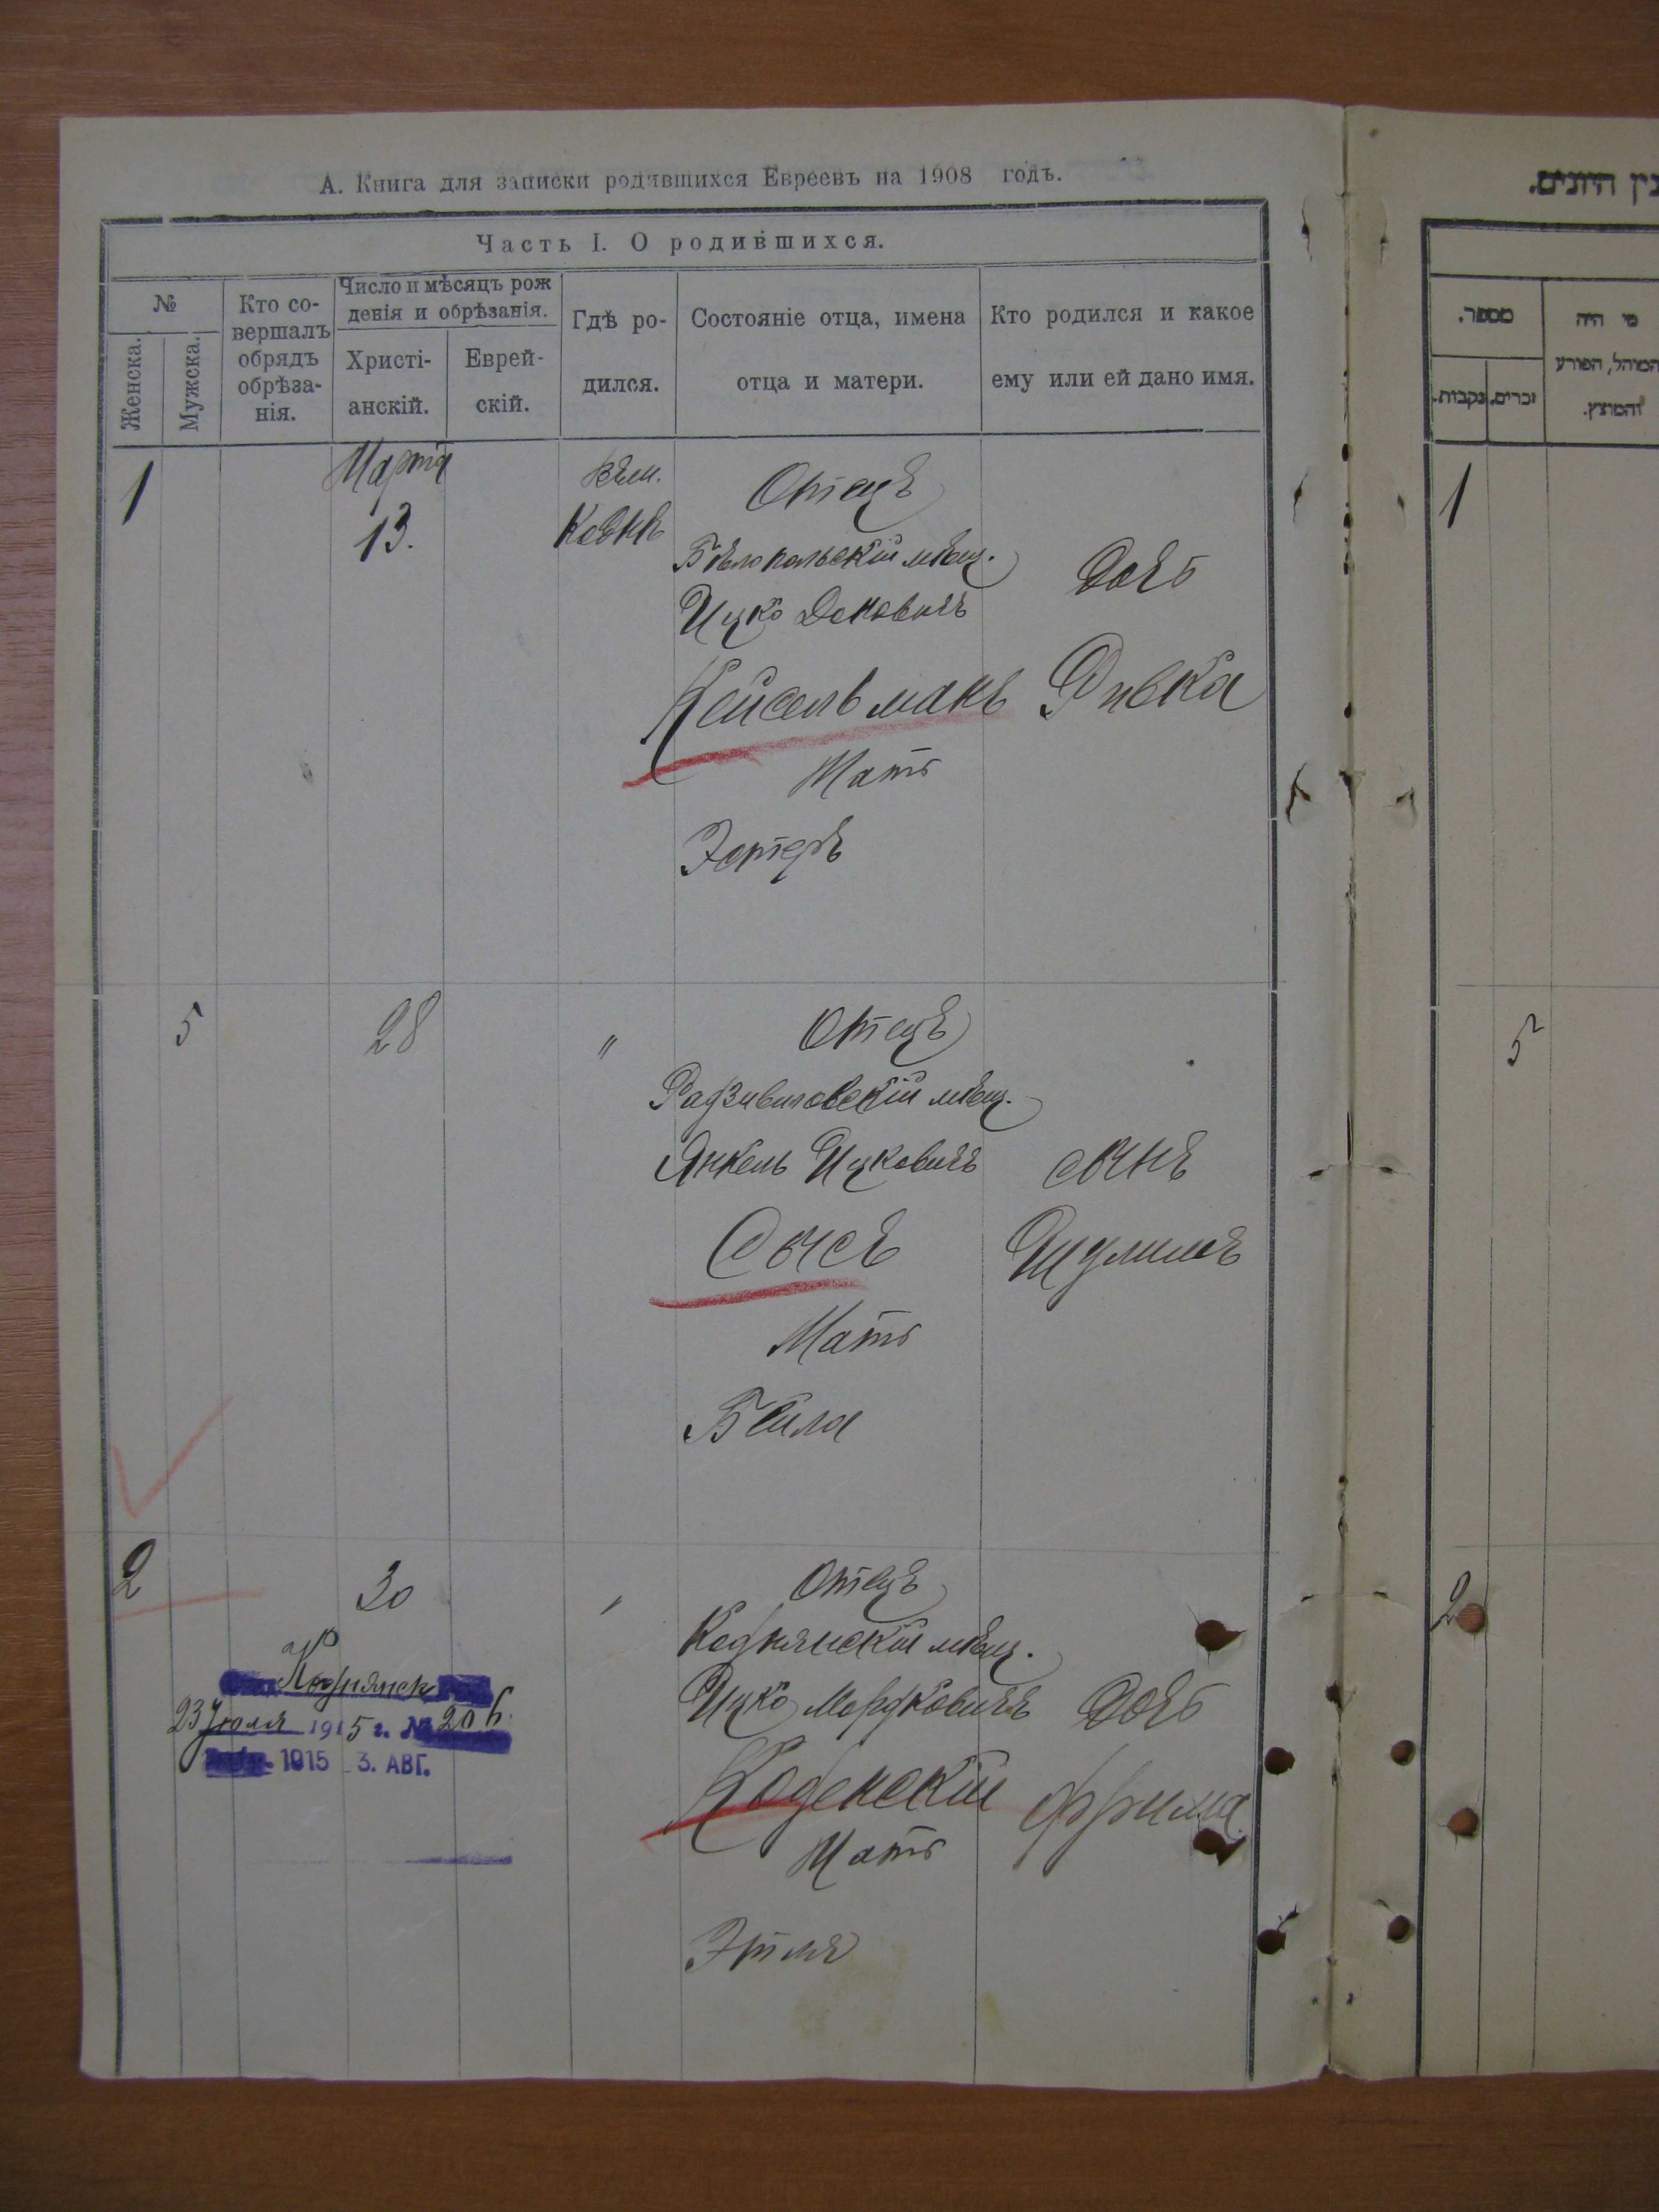 А. Книга для записки родившихся Евреевъ на 1908 годъ.
Часть I. О родившихся.
№
Женска.
Мужска.
Кто со-
вершалъ
обрядъ
обрѣза-
нія.
Число и мѣсяцъ рож
денія и обрѣзанія.
Христі-
анскій.
Еврей-
скій.
Гдѣ ро-
дился.
Состояніе отца, имена
отца и матери.
Кто родился и какое
ему или ей дано имя.
1
Марта
13.
Отецъ
Бѣлопольскій мѣщ.
Ицко
Кейсельманъ
Мать
Эстеръ
Дочь
Ривка
5
28
"
Отецъ
Радзивиловскій мѣщ.
Янкель Ицковичъ
Сысъ
Мать
Бейла
сынъ
Шулимъ
2
30
"
Отецъ
Коднянскій мѣщ.
Ицко Мордковичъ
Коденскій
Мать
Этля
Дочь
Фрима
Коднянск
23 Іюля 1915 г. № 206
1915 3. АВГ.
בין היונים.
מספר.
נקבות.
זכרים.
מי היה
המוהל, הפורע
והמוצץ.
1
5
2